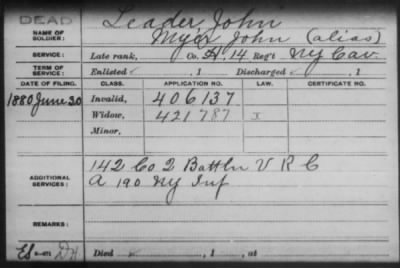 DEAD
Leader, John
NAME OF SOLDIER: Myer John (alias)
SERVICE: Late rank, Co. H. 14 Reg't NY Cav.
TERM OF SERVICE: Enlisted , 1 Discharged , 1
DATE OF FILING. CLASS. APPLICATION NO. LAW. CERTIFICATE NO.
1880 June 30 Invalid, 406137
Widow, 421787 I
Minor,
142 Co 2 Battln V R C
ADDITIONAL SERVICES: A 190 NY Inf
REMARKS:
Died , 1 , at